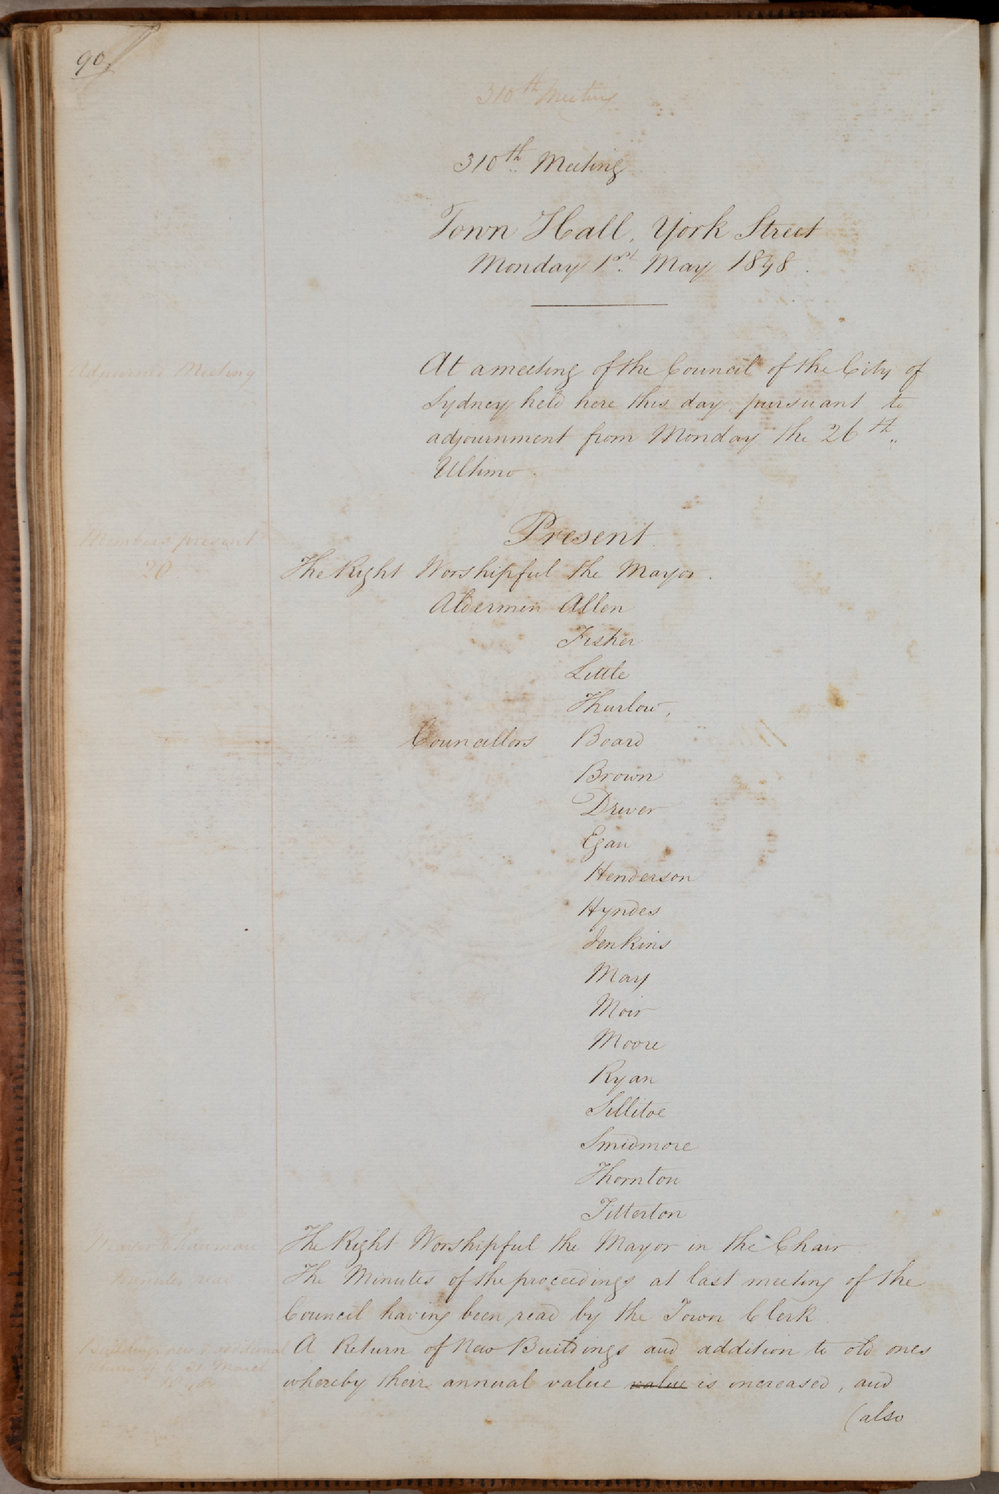 90
310th Meeting
310th Meeting
Town Hall, York Street
Monday 1st May 1848.
Adjourned Meeting
At a meeting of the Council of the City of
Sydney held here this day pursuant to
adjournment from Monday the 26th
Ultimo.
Present
Members present
20
The Right Worshipful the Mayor.
Aldermen Allen
Fisher
Little
Thurlow,
Councillors Board
Brown
Driver
Egan
Henderson
Hyndes
Jenkins
May
Moir
Moore
Ryan
Sillitoe
Smidmore
Thornton
Titterton
Mayor Chairman
The Right Worshipful the Mayor in the Chair
Minutes read
The Minutes of the proceedings at last meeting of the
Council having been read by the Town Clerk.
Buildings new & additional
A Return of New Buildings and addition to old ones
31 March
whereby their annual value value is increased, and
(also